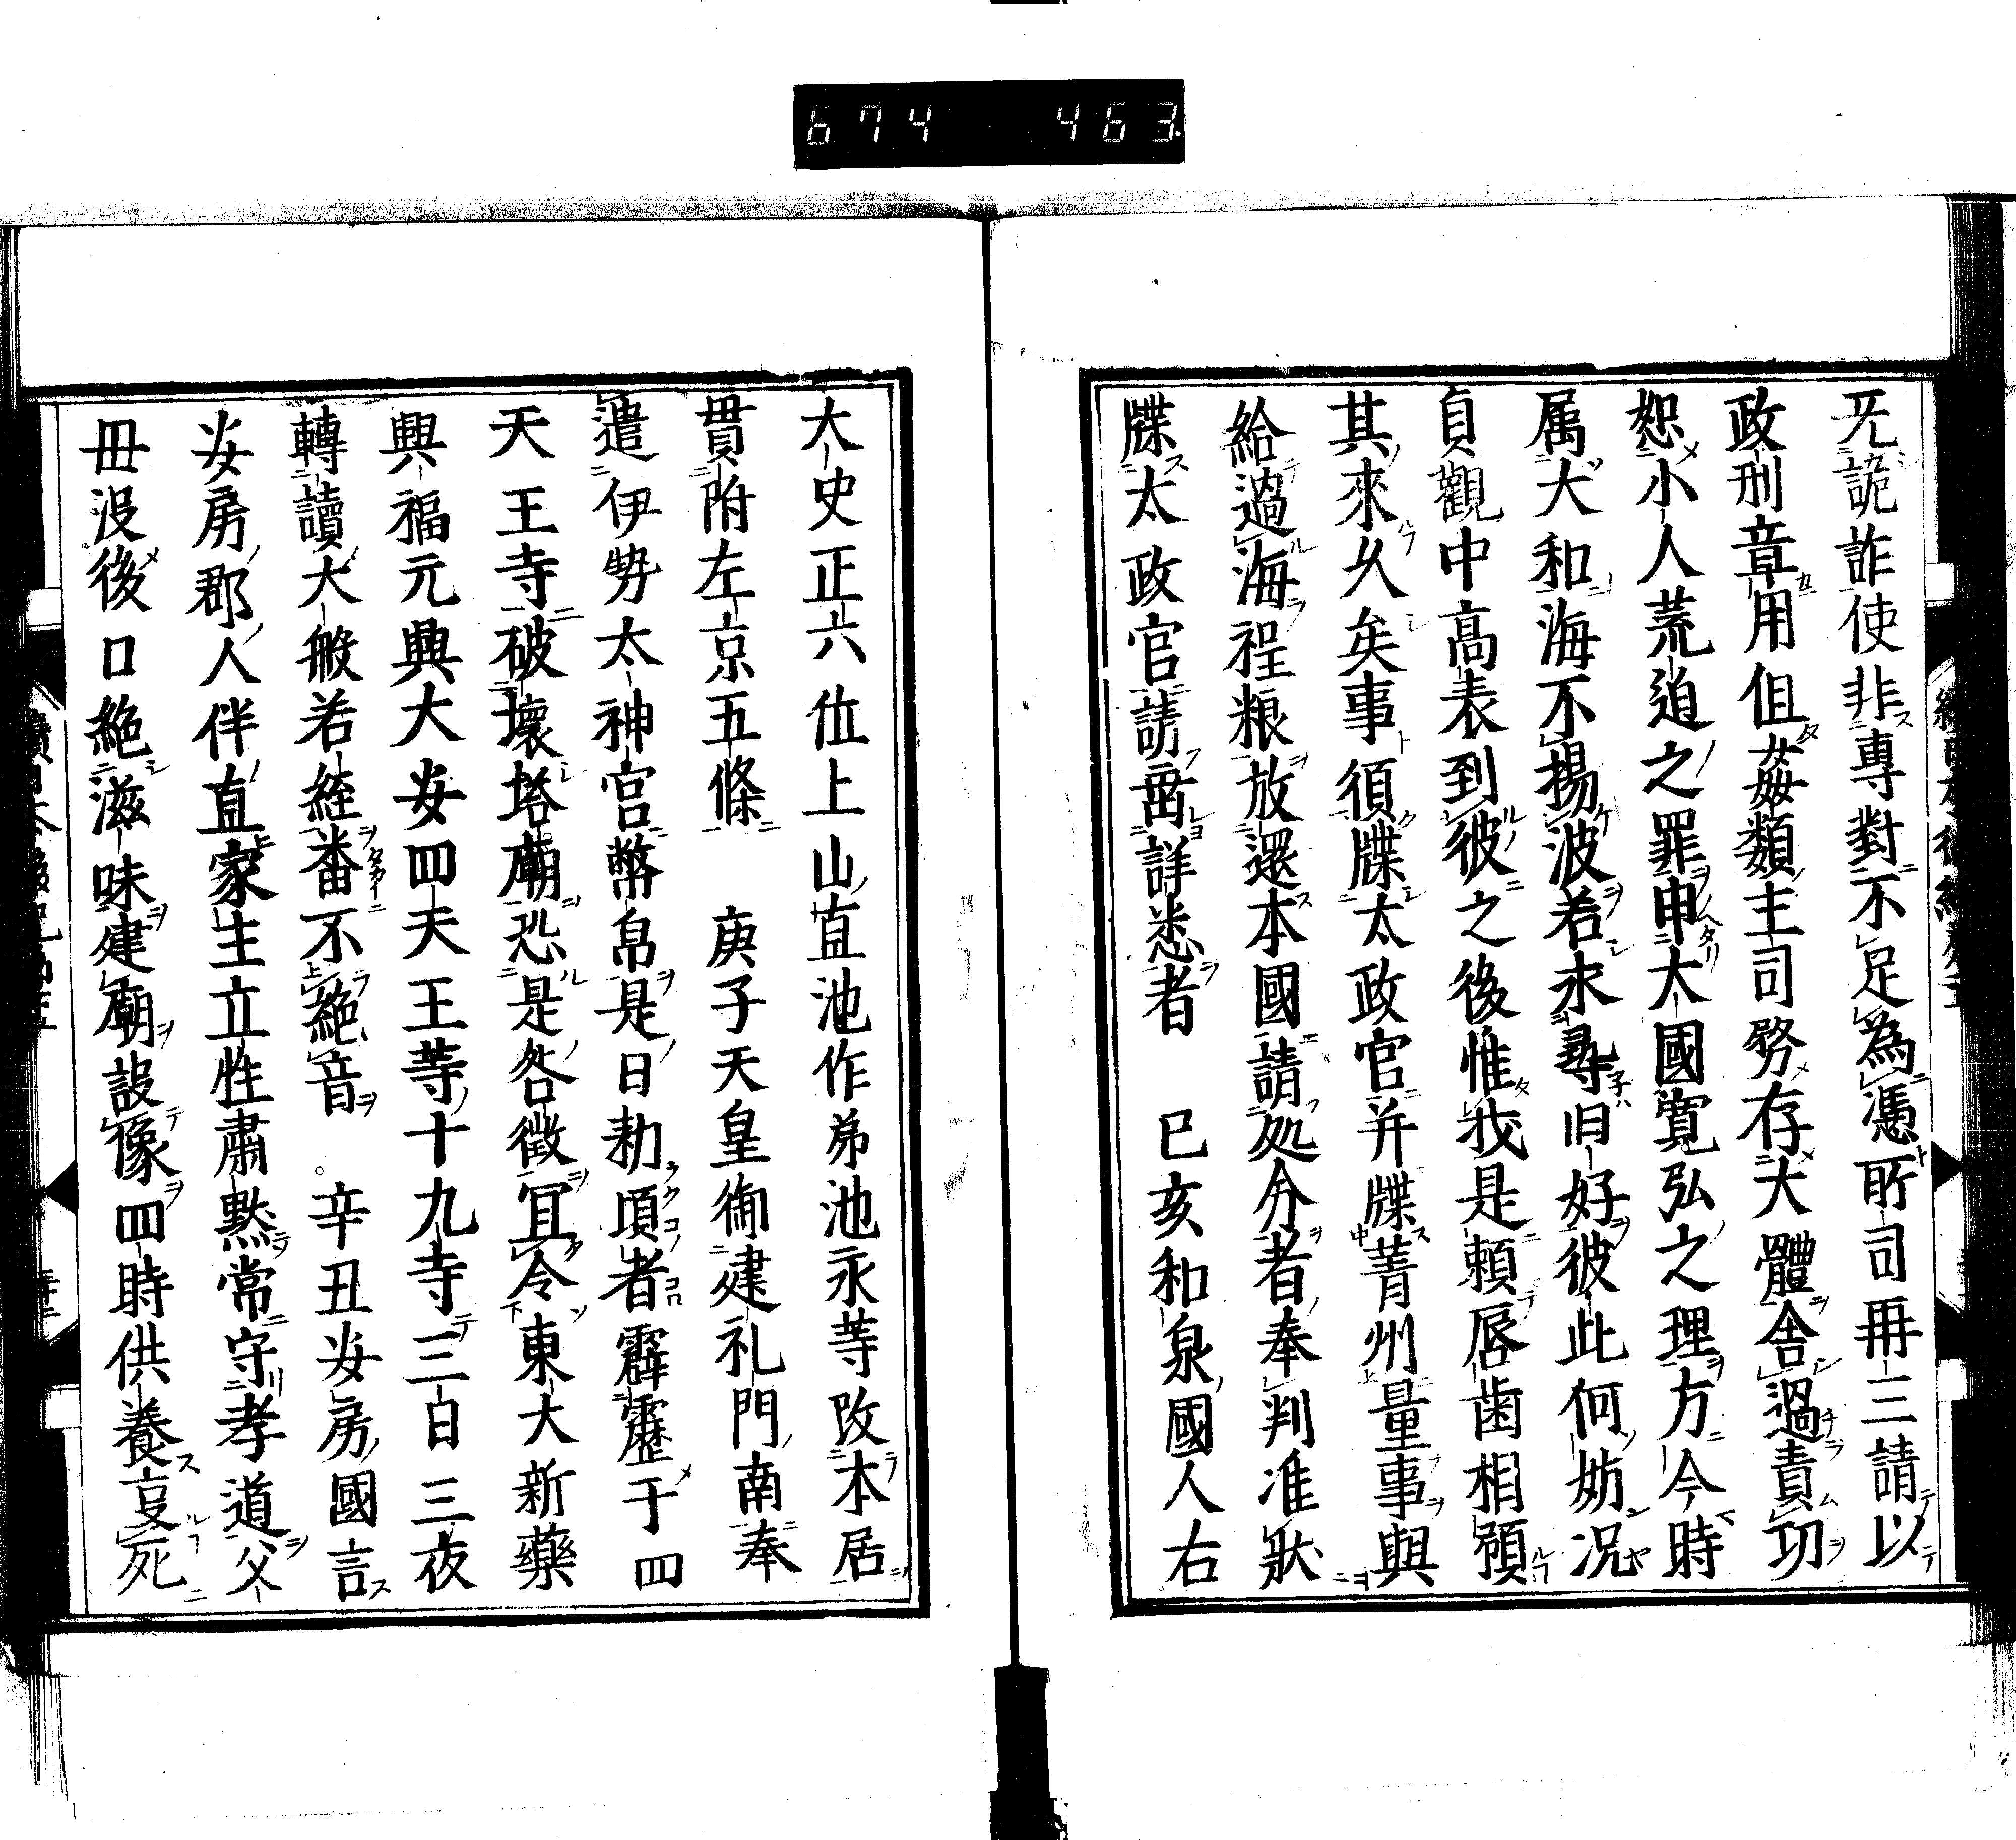 674 463
旡詭詐使非專對不足為憑所司再三請以
政刑章用但姦類主司務存大體舎過責功
恕小人荒迫之罪申大國寛弘之理方今時
属大和海不揚波若求尋旧好彼此何妨况
貞觀中高表到彼之後惟我是頼唇歯相須
其來久矣事須牒太政官并牒菁州量事與
給過海程粮放還本國請処分者奉判准状
牒太政官請啚詳悉者　已亥和泉國人右
大史正六位上山直池作弟池永等改本居
貫附左京五條　庚子天皇御建礼門南奉
遣伊勢太神宮幣帛是日勅項者霹靂于四
天王寺破壞塔廟恐是咎徴冝令東大新藥
興福元興大安四天王等十九寺三百三夜
轉讀大般若經番不絶音　辛丑安房國言
安房郡人伴直家主立性肅黙常守孝道父
毌没後口絶滋味建廟設像四時供養㐮死